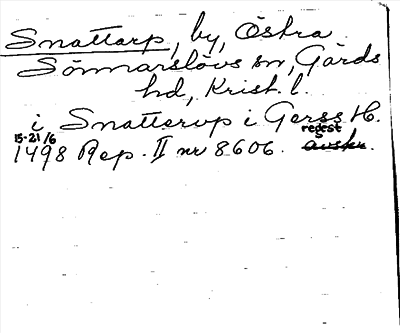 Snattarp, by, Östra
Sönnarslövs sn, Gärds
hd, Krist. l.
i Snatterup i Gerss H.
15-21/6 regest
1498 Rep. II nr 8606. avskr.